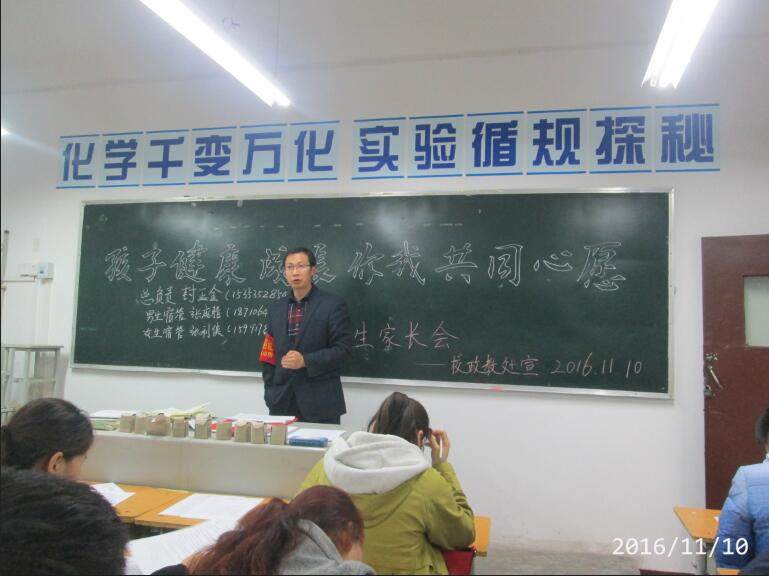 化学千变万化 实验循规探秘
孩子健康成长你我共同心愿
总负责 封正金(1535352850
男生宿管 张成雅(1871064
女生宿管 张利侠(159917
生家长会
——校政教处宣 2016.11.10
2016/11/10